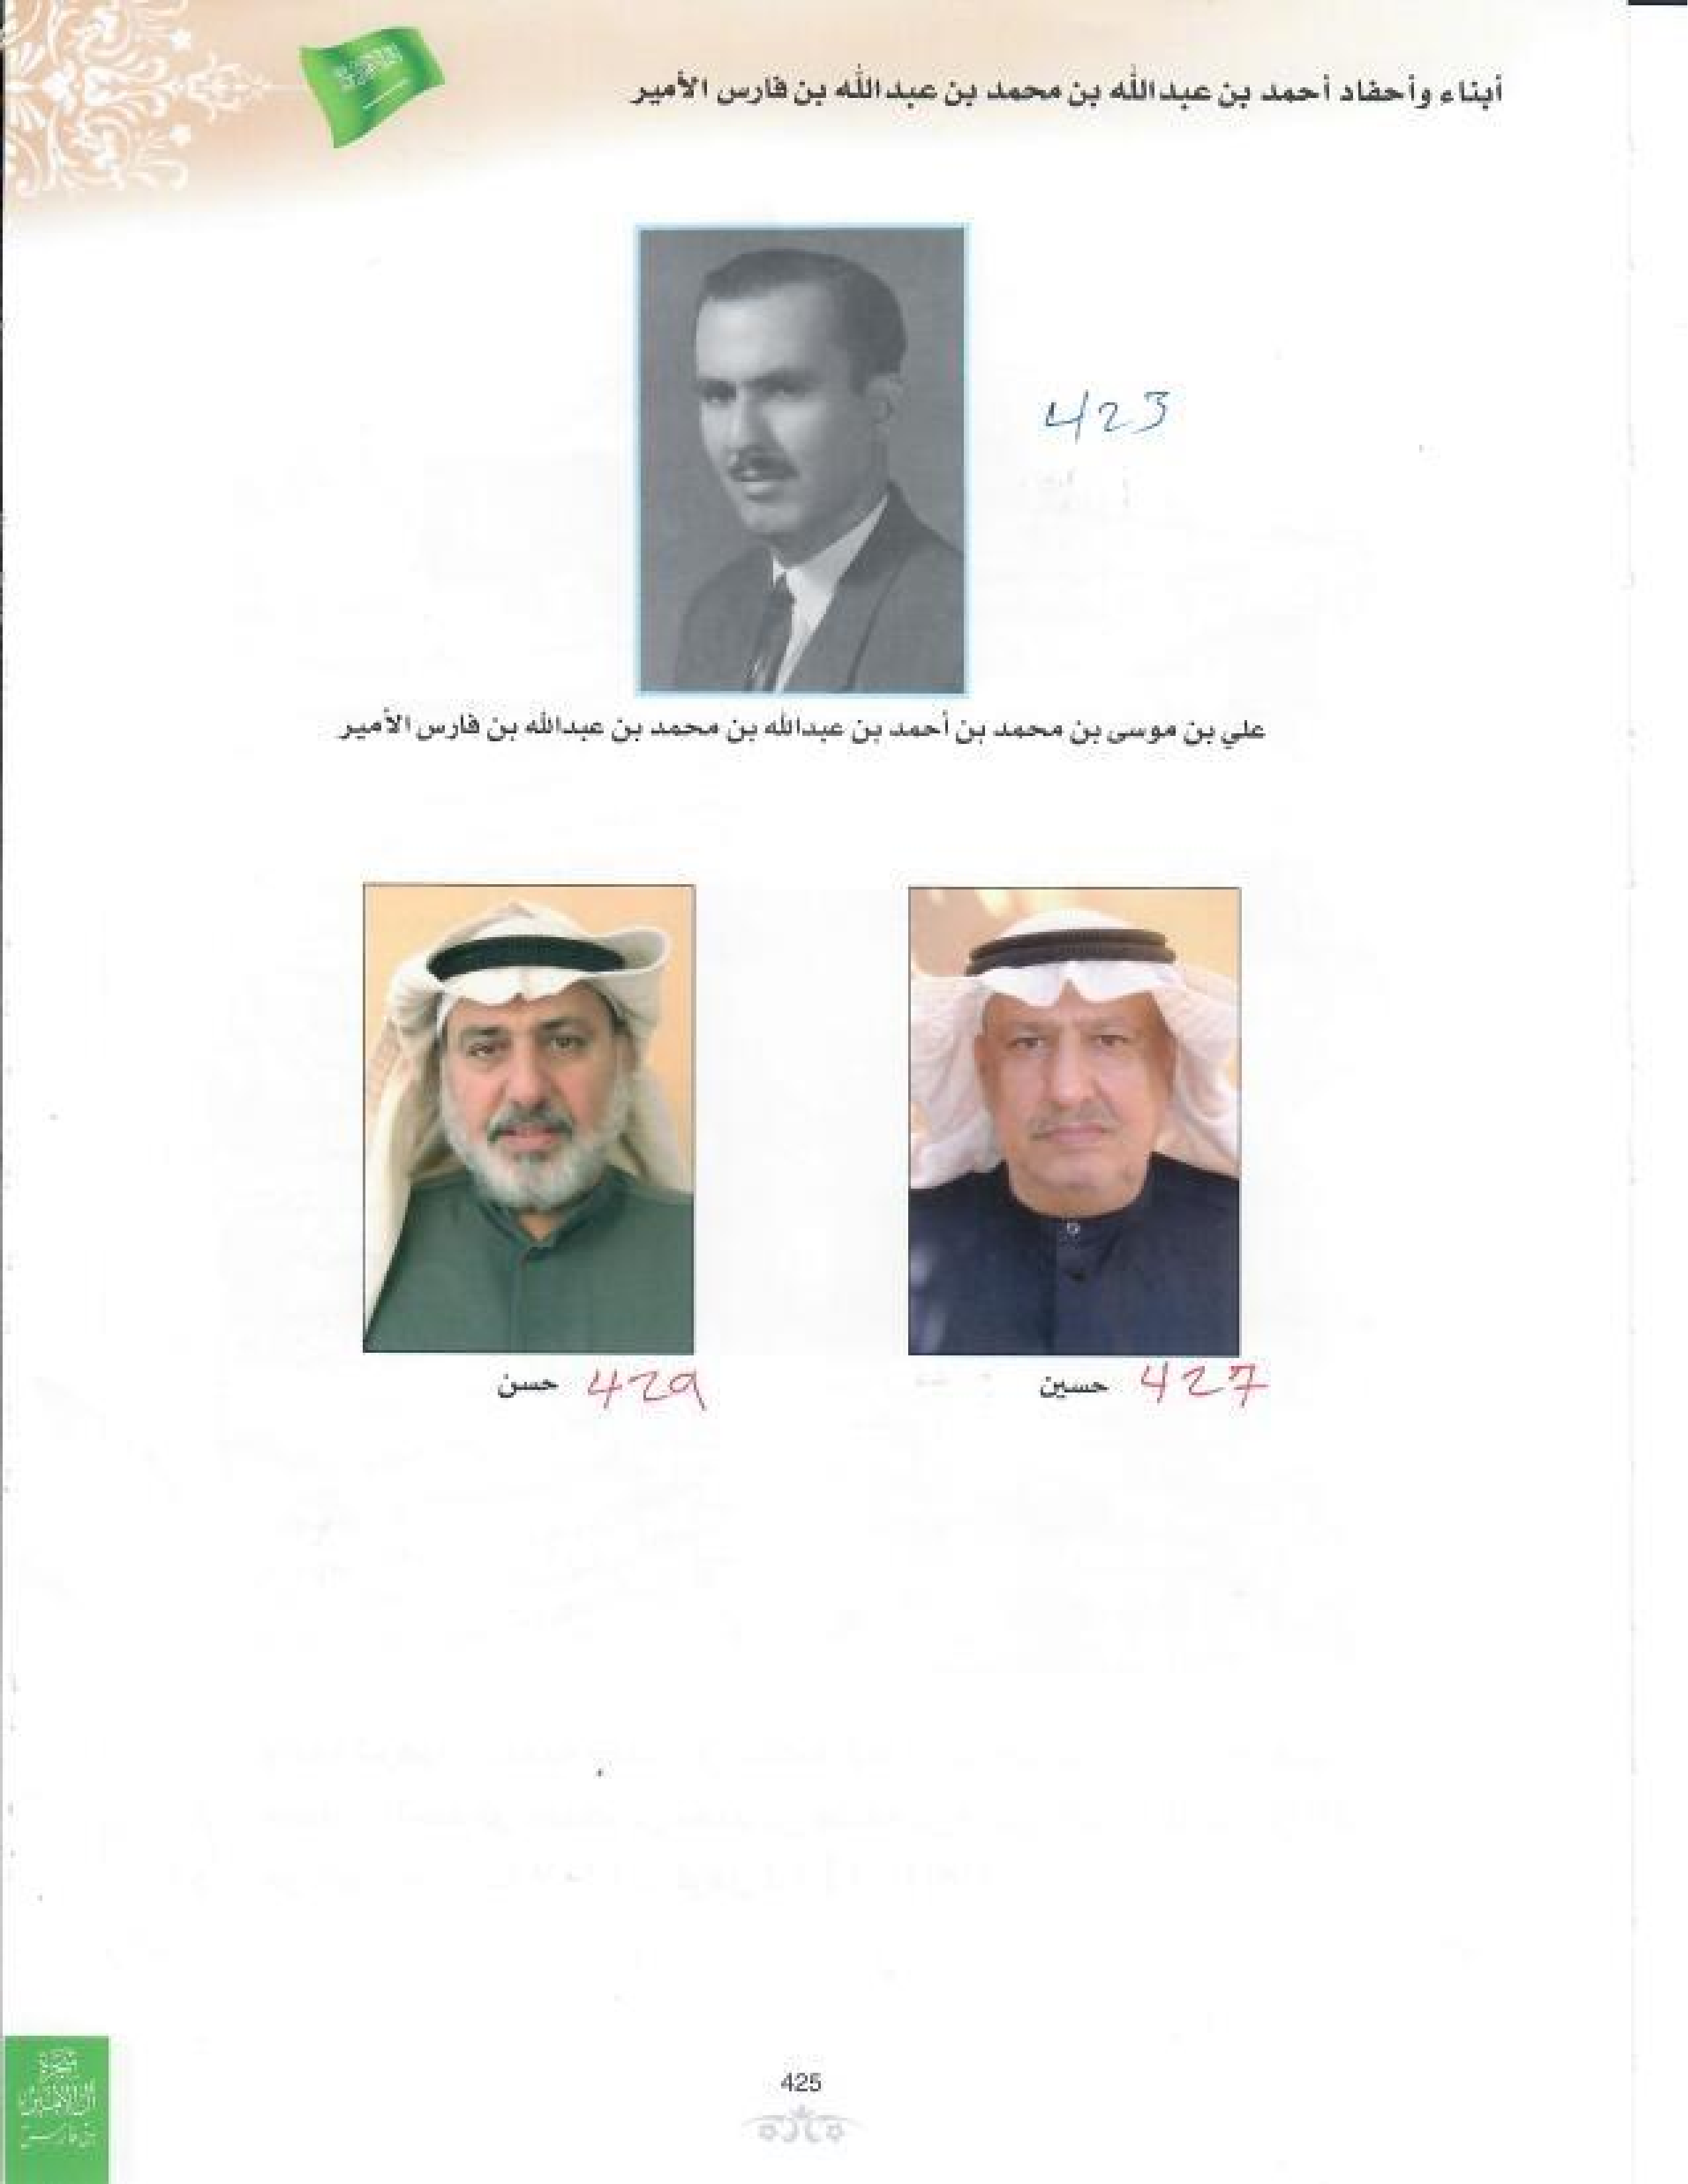 أبناء وأحفاد أحمد بن عبدالله بن محمد بن عبدالله بن فارس الأمير
423
علي بن موسى بن محمد بن أحمد بن عبدالله بن محمد بن عبدالله بن فارس الأمير
427 حسين
429 حسن
شجرة
آل الأمير
بن فارس
425